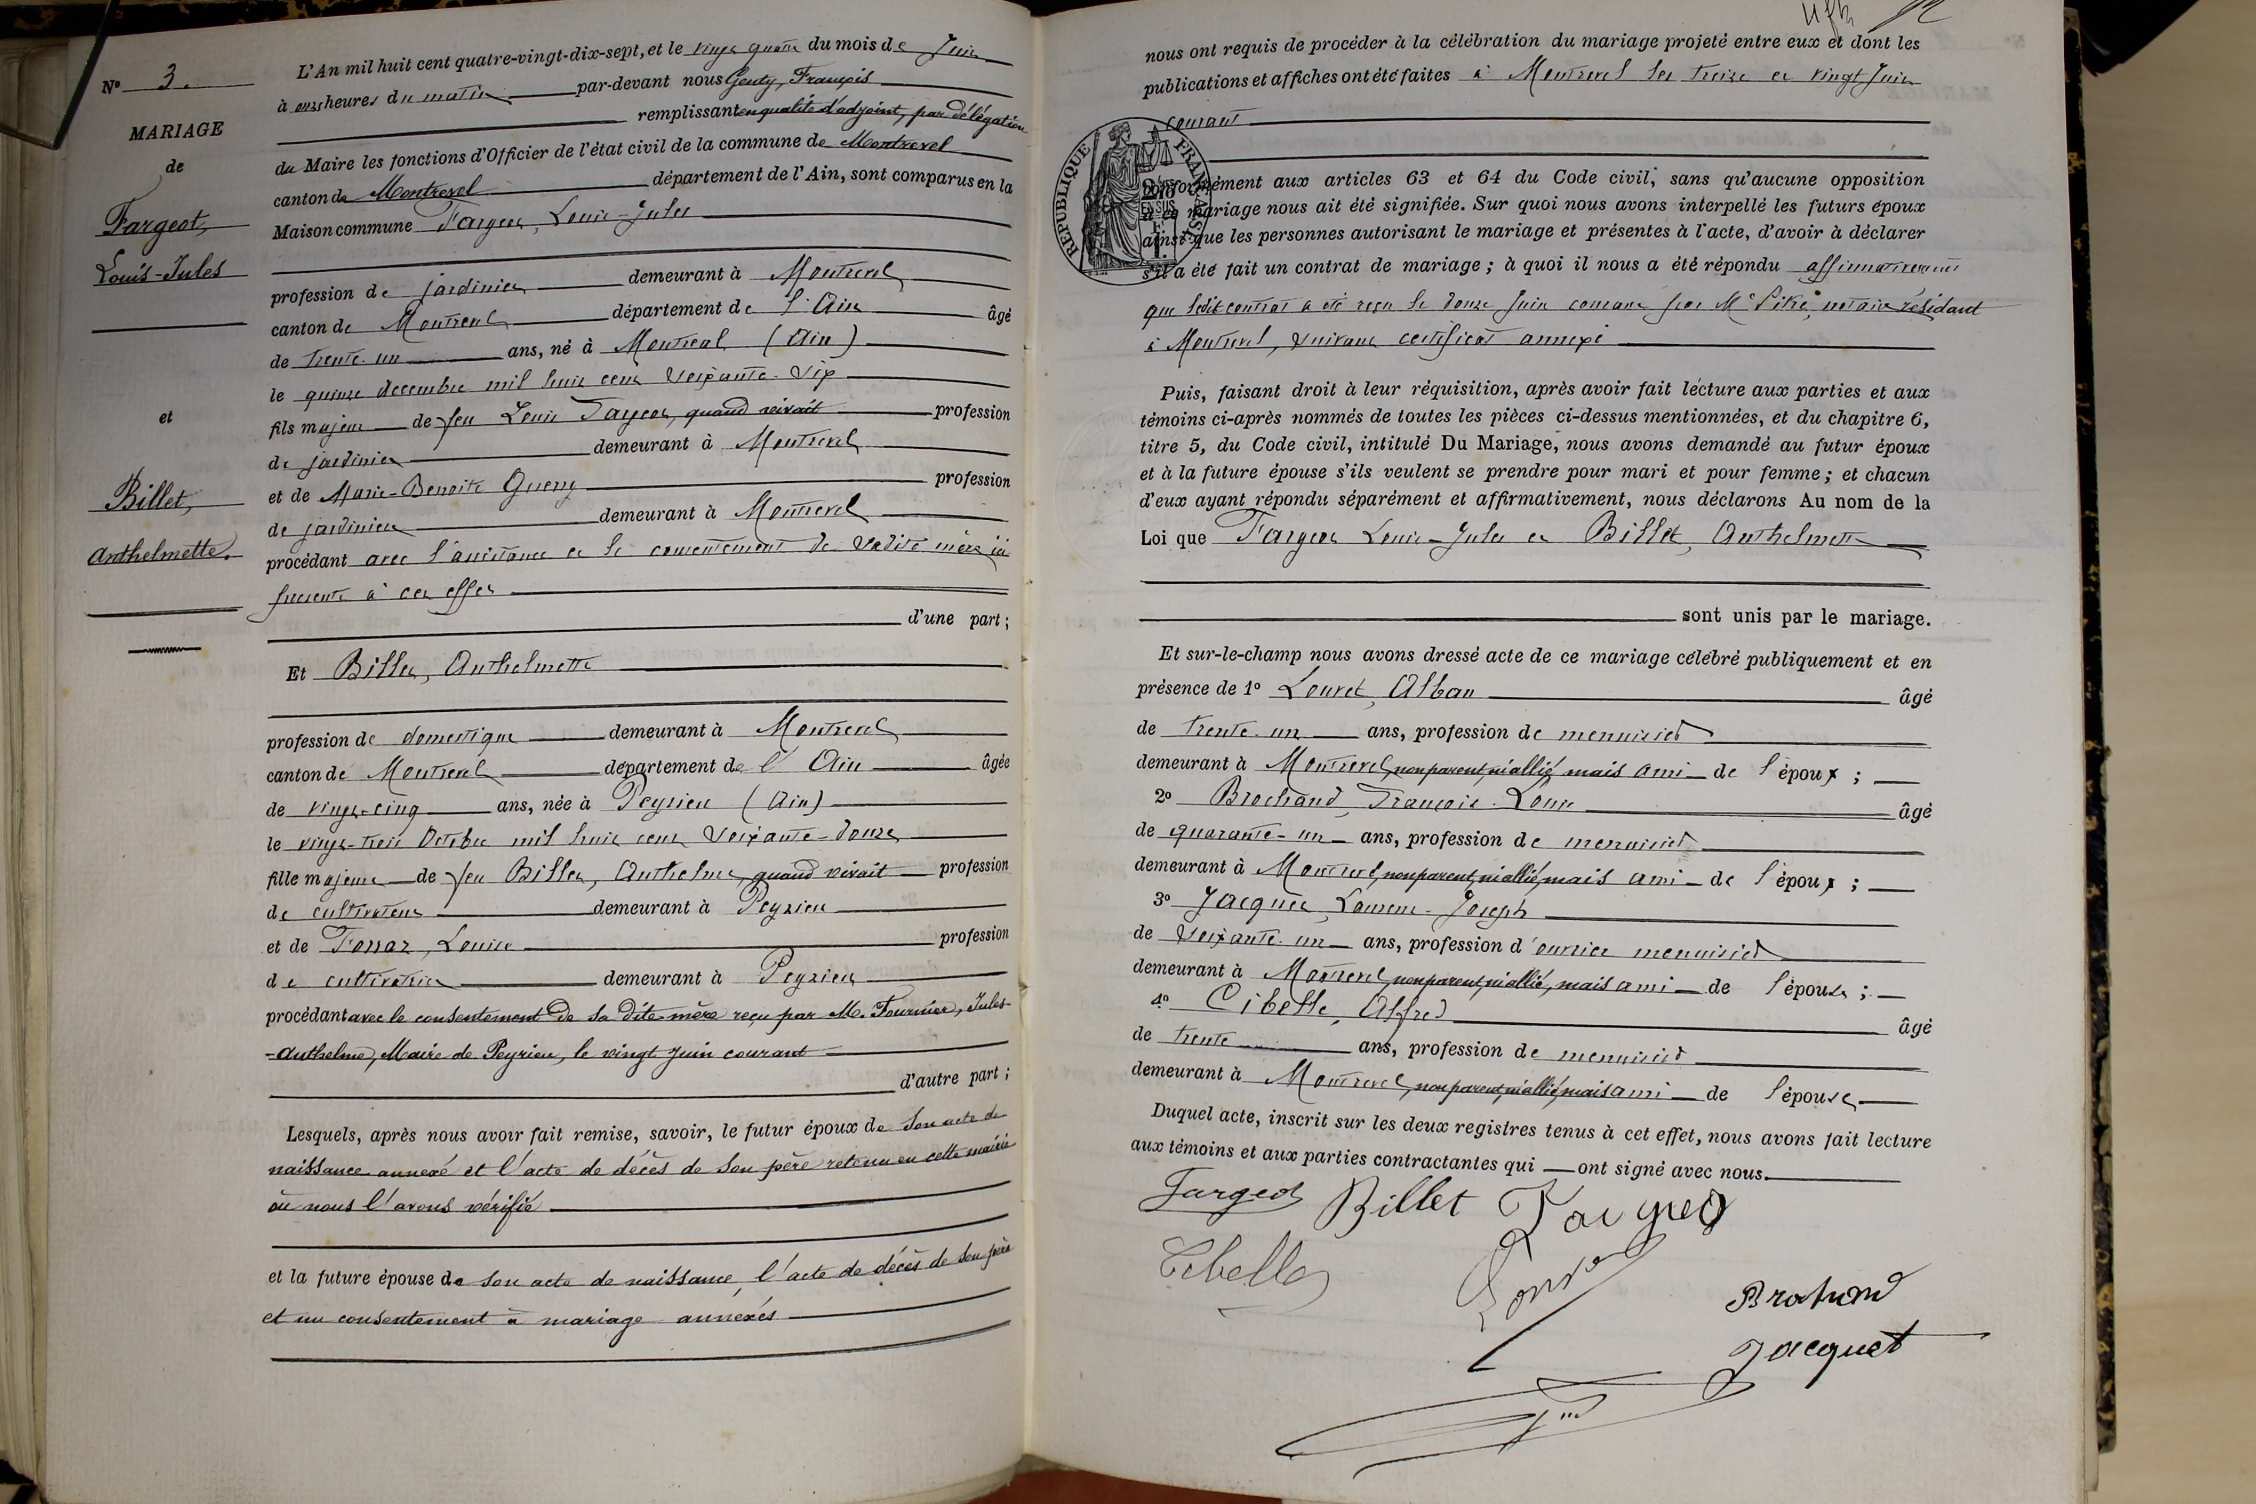 N° 3.
MARIAGE
de
Fargeot,
Louis-Jules
et
Billet,
Anthelmette.
L'An mil huit cent quatre-vingt-dix-sept, et le vingt quatre du mois de Juin
à onze heures du matin par-devant nous Genty, François
remplissant en qualité d'adjoint, par délégation
du Maire les fonctions d'Officier de l'état civil de la commune de Montrevel
canton de Montrevel département de l'Ain, sont comparus en la
Maison commune Fargeot, Louis-Jules
profession de jardinier demeurant à Montrevel
canton de Montrevel département de l'Ain âgé
de trente-un ans, né à Montrevel (Ain)
le quinze decembre mil huit cent soixante-six
fils majeur de feu Louis Fargeot, quand vivait profession
de jardinier demeurant à Montrevel
et de Marie-Benoite profession
de jardinière demeurant à Montrevel
procédant avec l'assistance et le consentement de sadite mère ici
presente à cet effet
d'une part ;
Et Billet, Anthelmette
profession de domestique demeurant à Montrevel
canton de Montrevel département de l'Ain âgée
de vingt-cinq ans, née à Peyrieu (Ain)
le vingt-trois Octobre mil huit cent soixante-douze
fille majeure de feu Billet, Anthelme, quand vivait profession
de cultivateur demeurant à Peyrieu
et de Louise profession
de cultivatrice demeurant à Peyrieu
procédant avec le consentement de sa dite mère reçu par M. Fournier, Jules-
-Anthelme, Maire de Peyrieu, le vingt juin courant
d'autre part ;
Lesquels, après nous avoir fait remise, savoir, le futur époux de son acte de
naissance annexé et l'acte de décès de son père retenu en cette mairie
où nous l'avons vérifié
et la future épouse de son acte de naissance, l'acte de décès de son père
et un consentement à mariage annexés
nous ont requis de procéder à la célébration du mariage projeté entre eux et dont les
publications et affiches ont été faites à Montrevel les treize et vingt Juin
courant
RÉPUBLIQUE FRANÇAISE
conformément aux articles 63 et 64 du Code civil, sans qu'aucune opposition
à ce mariage nous ait été signifiée. Sur quoi nous avons interpellé les futurs époux
ainsi que les personnes autorisant le mariage et présentes à l'acte, d'avoir à déclarer
s'il a été fait un contrat de mariage ; à quoi il nous a été répondu affirmativement
que ledit contrat a été reçu le douze Juin courant par Me notaire résidant
à Montrevel, suivant certificat annexé
Puis, faisant droit à leur réquisition, après avoir fait lecture aux parties et aux
témoins ci-après nommés de toutes les pièces ci-dessus mentionnées, et du chapitre 6,
titre 5, du Code civil, intitulé Du Mariage, nous avons demandé au futur époux
et à la future épouse s'ils veulent se prendre pour mari et pour femme ; et chacun
d'eux ayant répondu séparément et affirmativement, nous déclarons Au nom de la
Loi que Fargeot Louis-Jules et Billet, Anthelmette
sont unis par le mariage.
Et sur-le-champ nous avons dressé acte de ce mariage célébré publiquement et en
présence de 1° Louvet, Alban âgé
de trente-un ans, profession de menuisier
demeurant à Montrevel, non parent, ni allié, mais ami de l'époux ;
2° Brochand, François-Louis âgé
de quarante-un ans, profession de menuisier
demeurant à Montrevel, non parent, ni allié, mais ami de l'époux ;
3° Jacquet, Laurent-Joseph
de soixante-un ans, profession d'ouvrier menuisier
demeurant à Montrevel, non parent, ni allié, mais ami de l'épouse ;
4° Cibelle, Alfred âgé
de trente ans, profession de menuisier
demeurant à Montrevel, non parent, ni allié, mais ami de l'épouse
Duquel acte, inscrit sur les deux registres tenus à cet effet, nous avons fait lecture
aux témoins et aux parties contractantes qui ont signé avec nous.
Fargeot Billet
Cibelle
Brochand
Jacquet